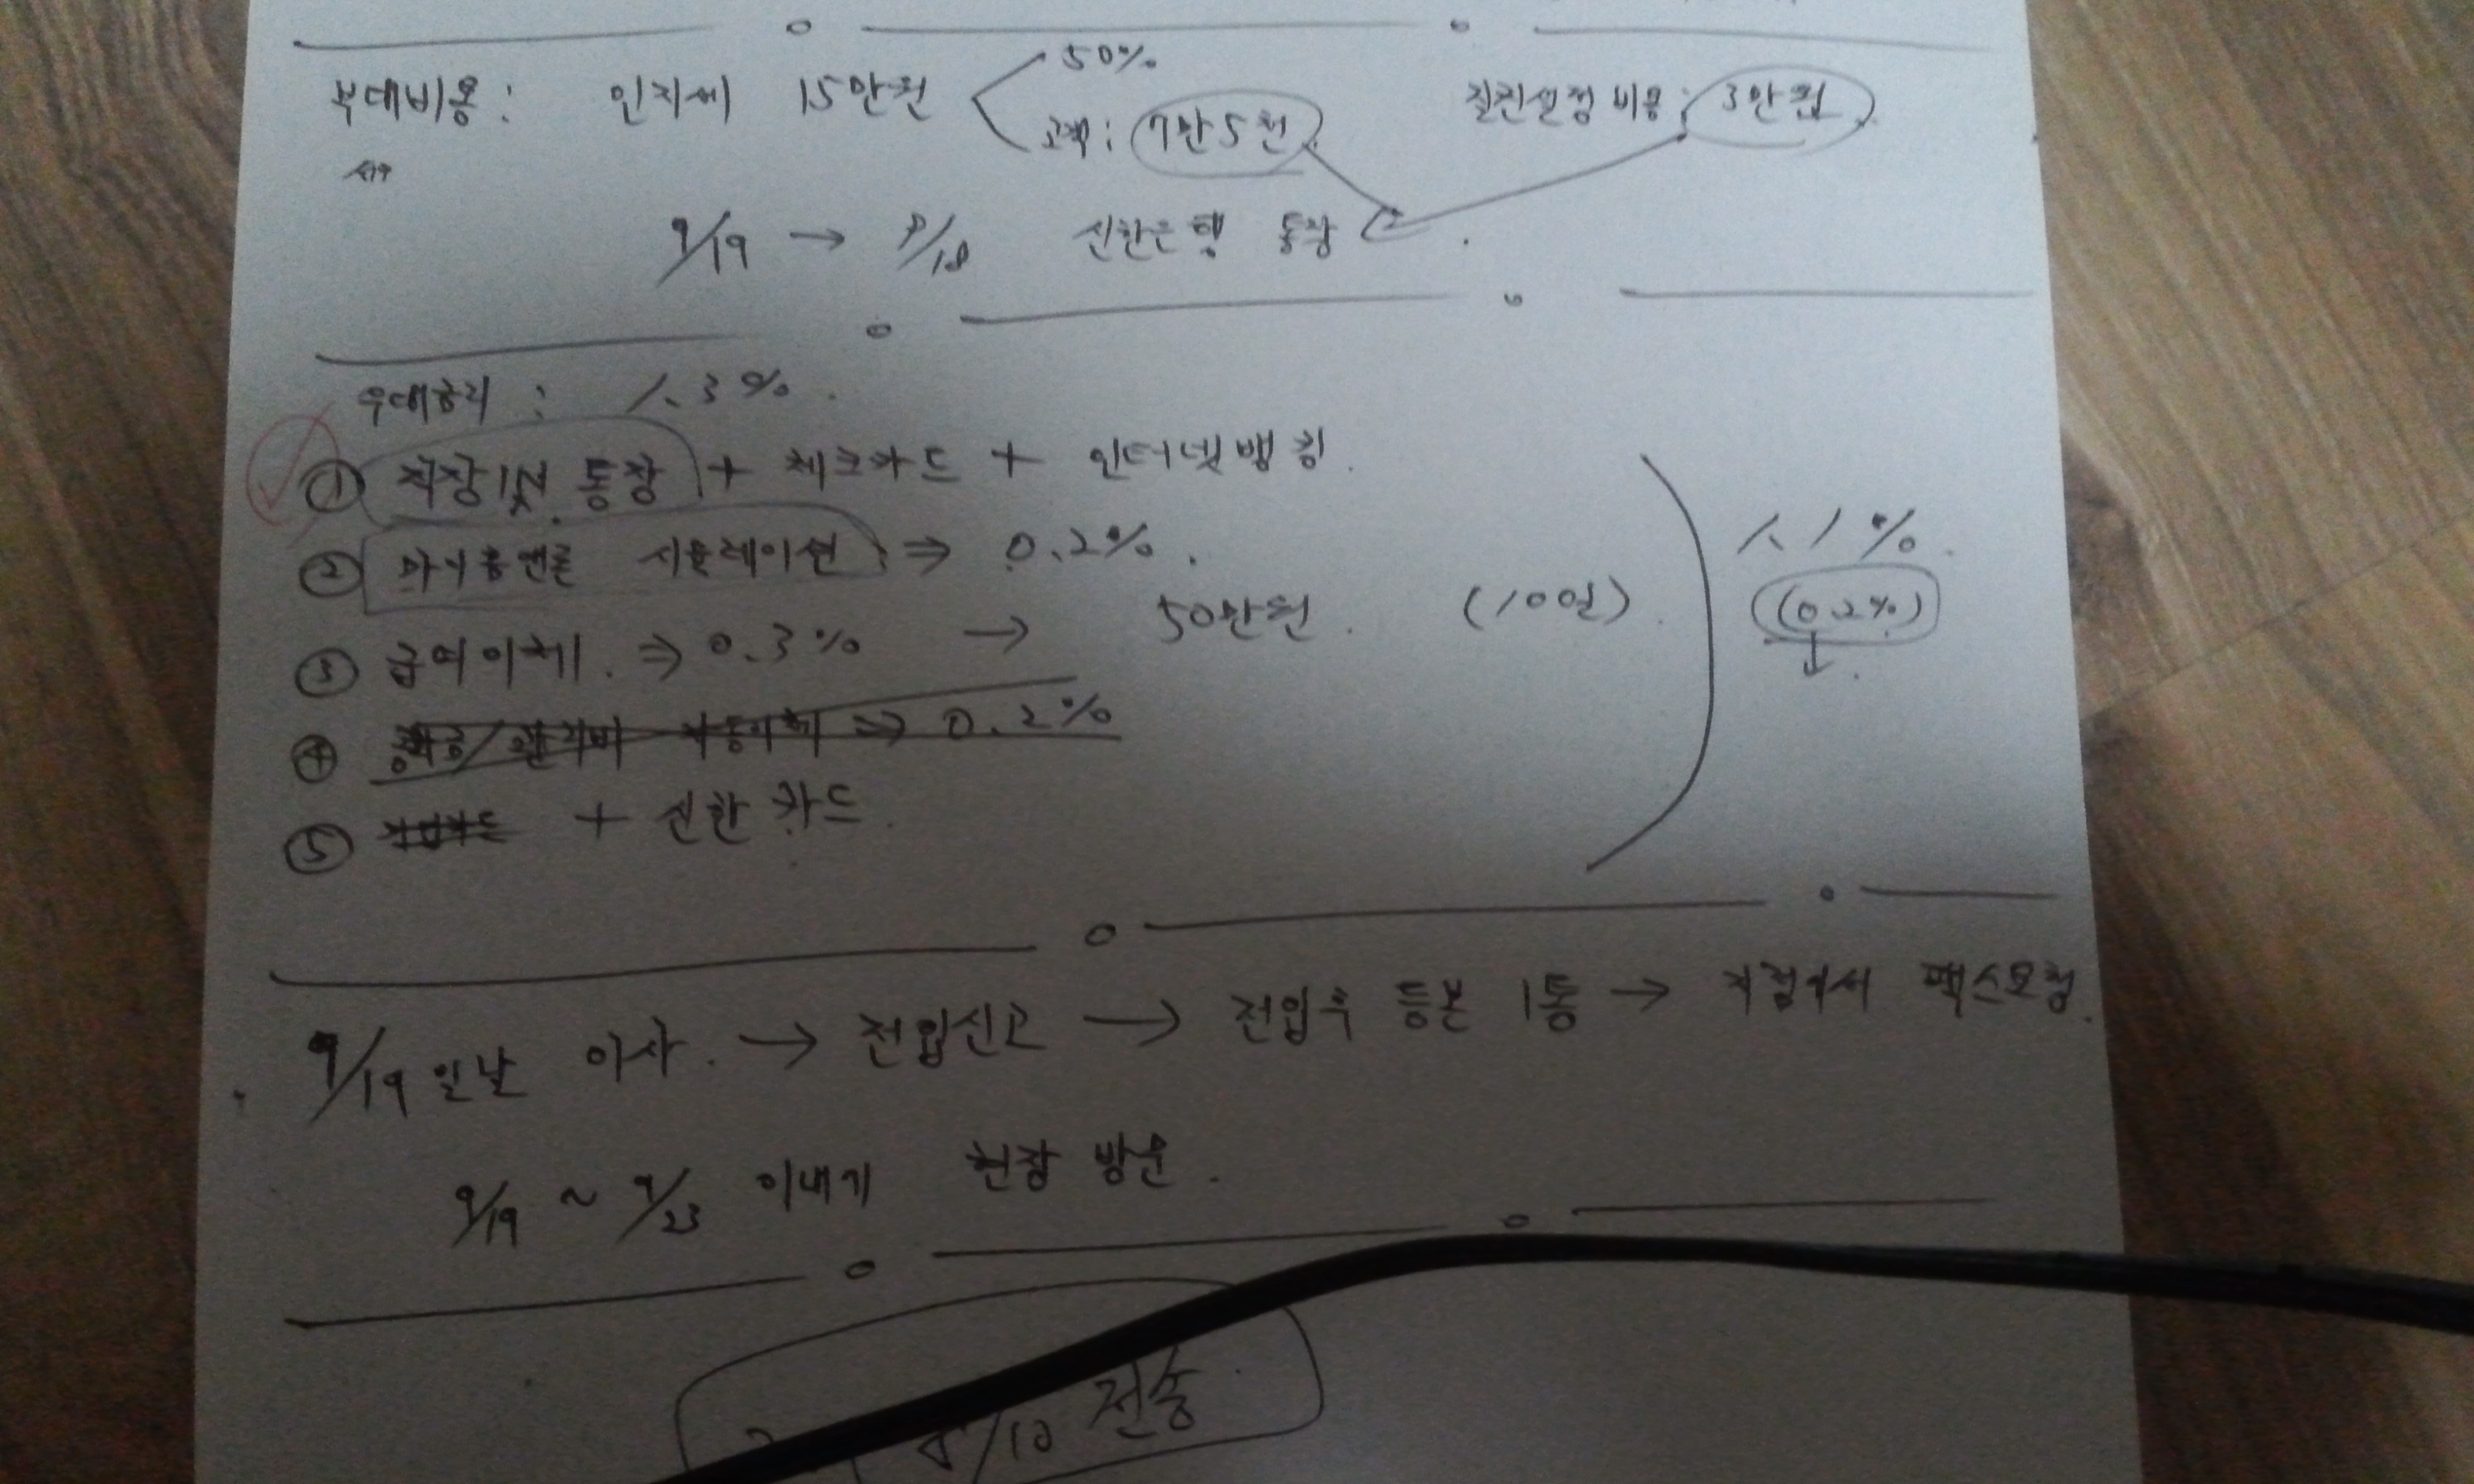 50%
부대비용 : 인지세 15만원 고객 : 7만5천 질권설정 비용 : 3만원
9/19 → 9/18 신한은행 통장
우대금리 : 1.3%.
① 직장IN 통장 + 체크카드 + 인터넷뱅킹.
② 마이홈엔론 시뮬레이션 ⇒ 0.2%.
③ 급여이체. ⇒ 0.3% → 50만원. (10일).
1.1%.
(0.2%)
④ 자동이체 ⇒ 0.2%
⑤ + 신한 카드.
9/19 일날 이사. → 전입신고 → 전입후 등본 1통 → 지점에서 팩스요청.
9/19 ~ 9/23 이내기 현장 방문.
8/10 전송